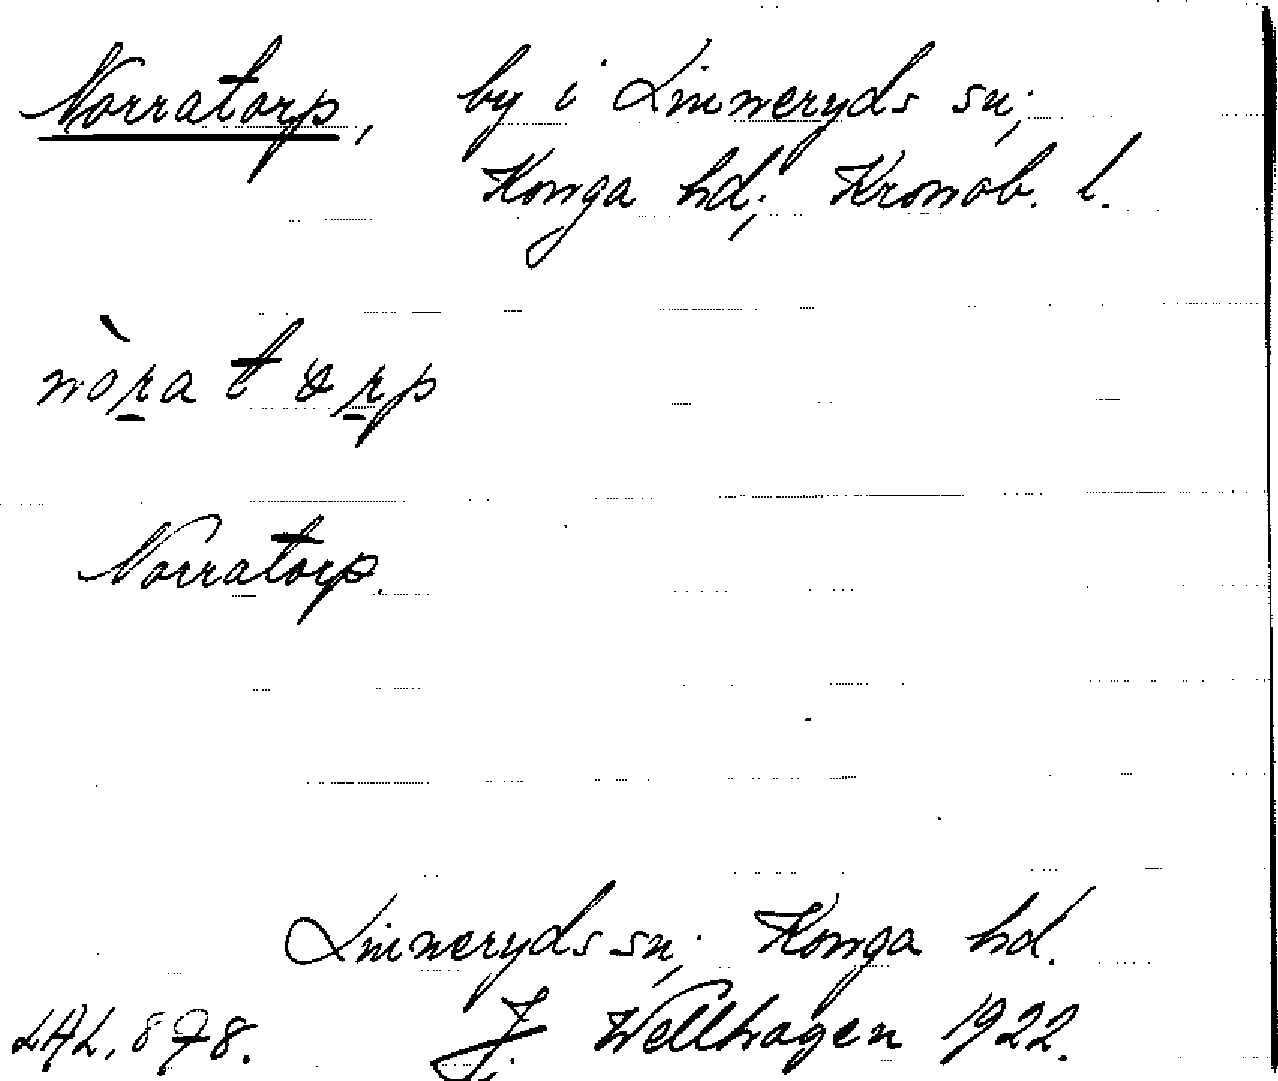 Norratorp, by i Linneryds sn;
Konga hd; Kronob. l.
nòra t
Norratorp.
Linneryds sn; Konga hd.
LAL. 878. J. Wellhagen 1922.